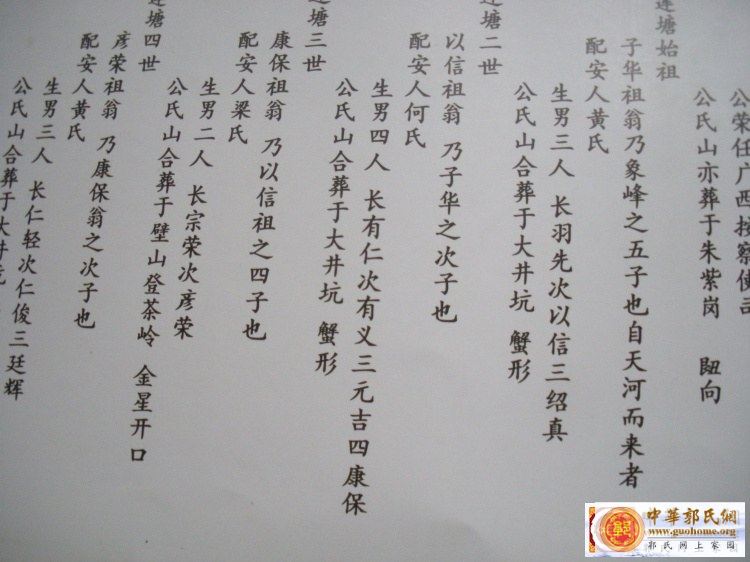 公荣任广西按察使司
公氏山亦葬于朱紫岗 向
莲塘始祖
子华祖翁乃象峰之五子也自天河而来者
配安人黄氏
生男三人 长羽先次以信三绍真
公氏山合葬于大井坑 蟹形
莲塘二世
以信祖翁 乃子华之次子也
配安人何氏
生男四人 长有仁次有义三元吉四康保
公氏山合葬于大井坑 蟹形
莲塘三世
康保祖翁 乃以信祖之四子也
配安人梁氏
生男二人 长宗荣次彦荣
公氏山合葬于壁山登茶岭 金星开口
莲塘四世
彦荣祖翁 乃康保翁之次子也
配安人黄氏
生男三人 长仁轻次仁俊三廷辉
公氏山合葬于大井坑
中華郭氏網
www.guohome.org
郭氏网上家园